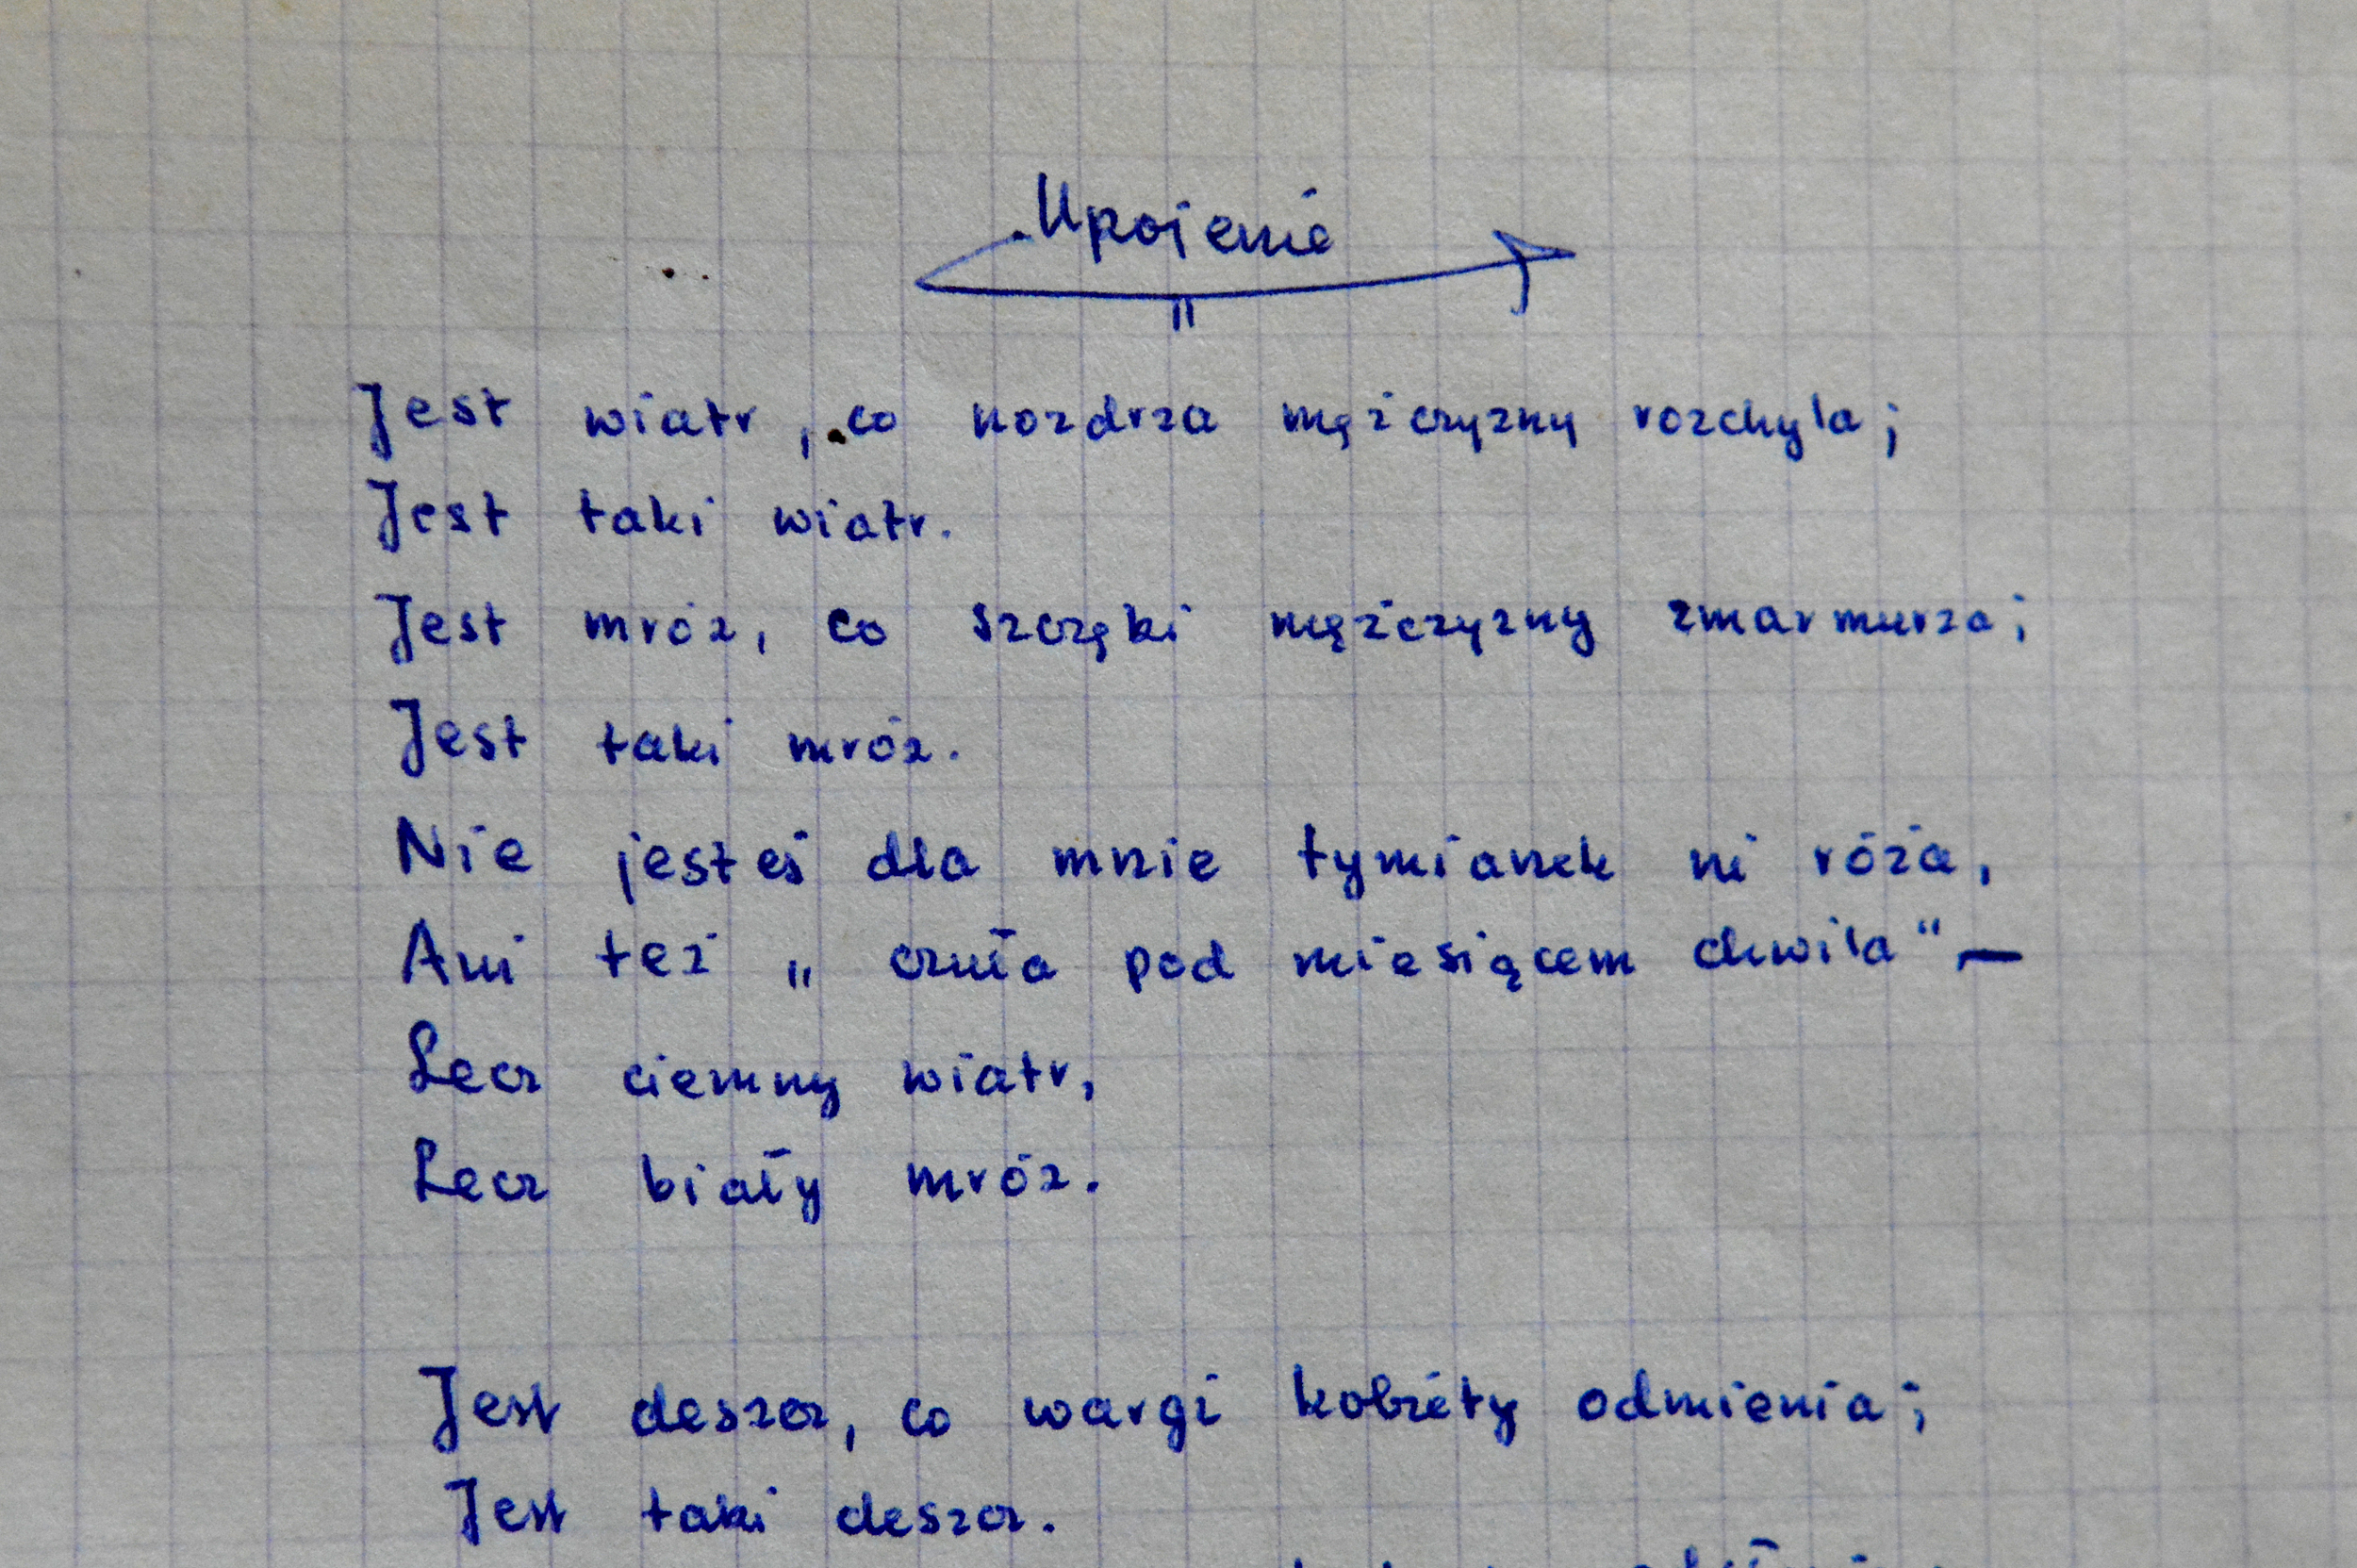 Upojenie
Jest wiatr, co nozdrza mężczyzny rozchyla;
Jest taki wiatr.
Jest mróz, co szczęki mężczyzny zmarmurza;
Jest taki mróz.
Nie jesteś dla mnie tymianek ni róża,
Ani też „czuła pod miesiącem chwila" —
Lecz ciemny wiatr,
Lecz biały mróz.
Jest deszcz, co wargi kobiety odmienia;
Jest taki deszcz.